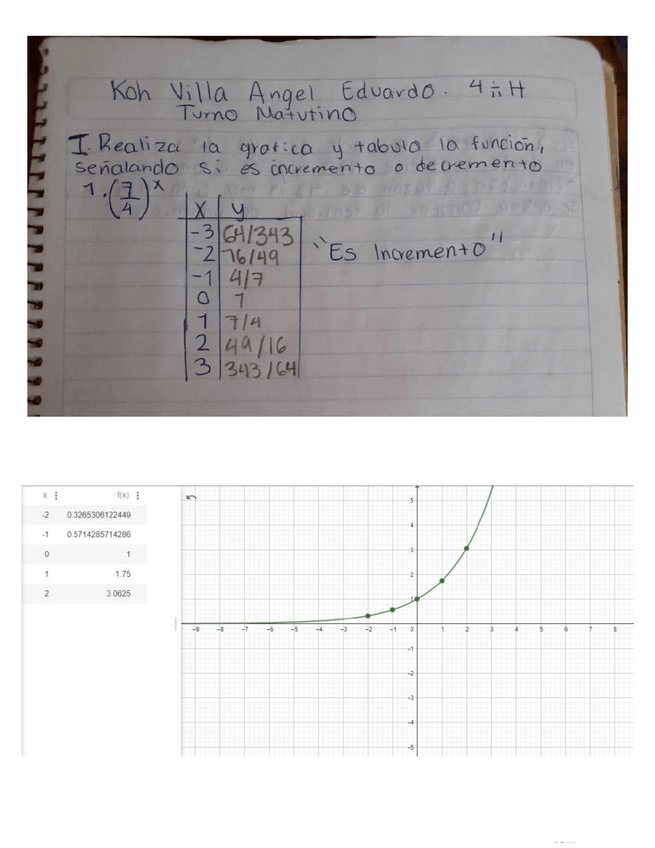 Koh Villa Angel Eduardo. 4 H
Turno Matutino
I. Realiza la grafica y tabula la función,
señalando si es incremento o decremento
1. (7/4)^x
x y
-3 64/343
-2 16/49
-1 4/7
0 1
1 7/4
2 49/16
3 343/64
"Es Incremento"
x f(x)
-2 0.3265306122449
-1 0.5714285714286
0 1
1 1.75
2 3.0625
5
4
3
2
1
-9 -8 -7 -6 -5 -4 -3 -2 -1 0 1 2 3 4 5 6 7 8
-1
-2
-3
-4
-5